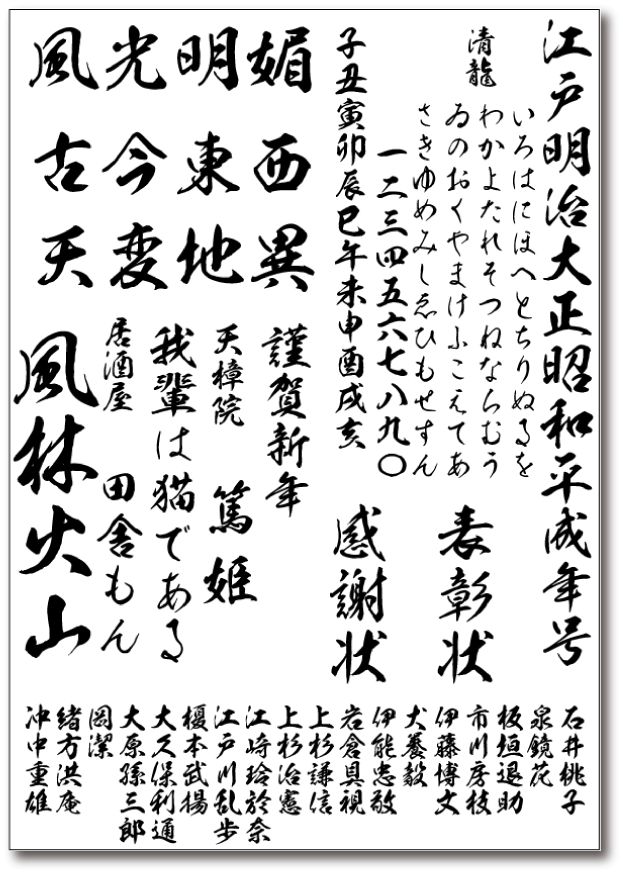 江戸明治大正昭和平成年号
清龍
いろはにほへとちりぬるを
わかよたれそつねならむう
ゐのおくやまけふこえてあ
さきゆめみしゑひもせすん
一二三四五六七八九〇
子丑寅卯辰巳午未申酉戌亥
表彰状
感謝状
風光明媚
古今東西
天変地異
謹賀新年
天樟院 篤姫
我輩は猫である
居酒屋 田舎もん
風林火山
石井桃子
泉鏡花
板垣退助
市川房枝
伊藤博文
犬養毅
伊能忠敬
岩倉具視
上杉謙信
上杉治憲
江崎玲於奈
江戸川乱歩
榎本武揚
大久保利通
大原孫三郎
岡潔
緒方洪庵
沖中重雄